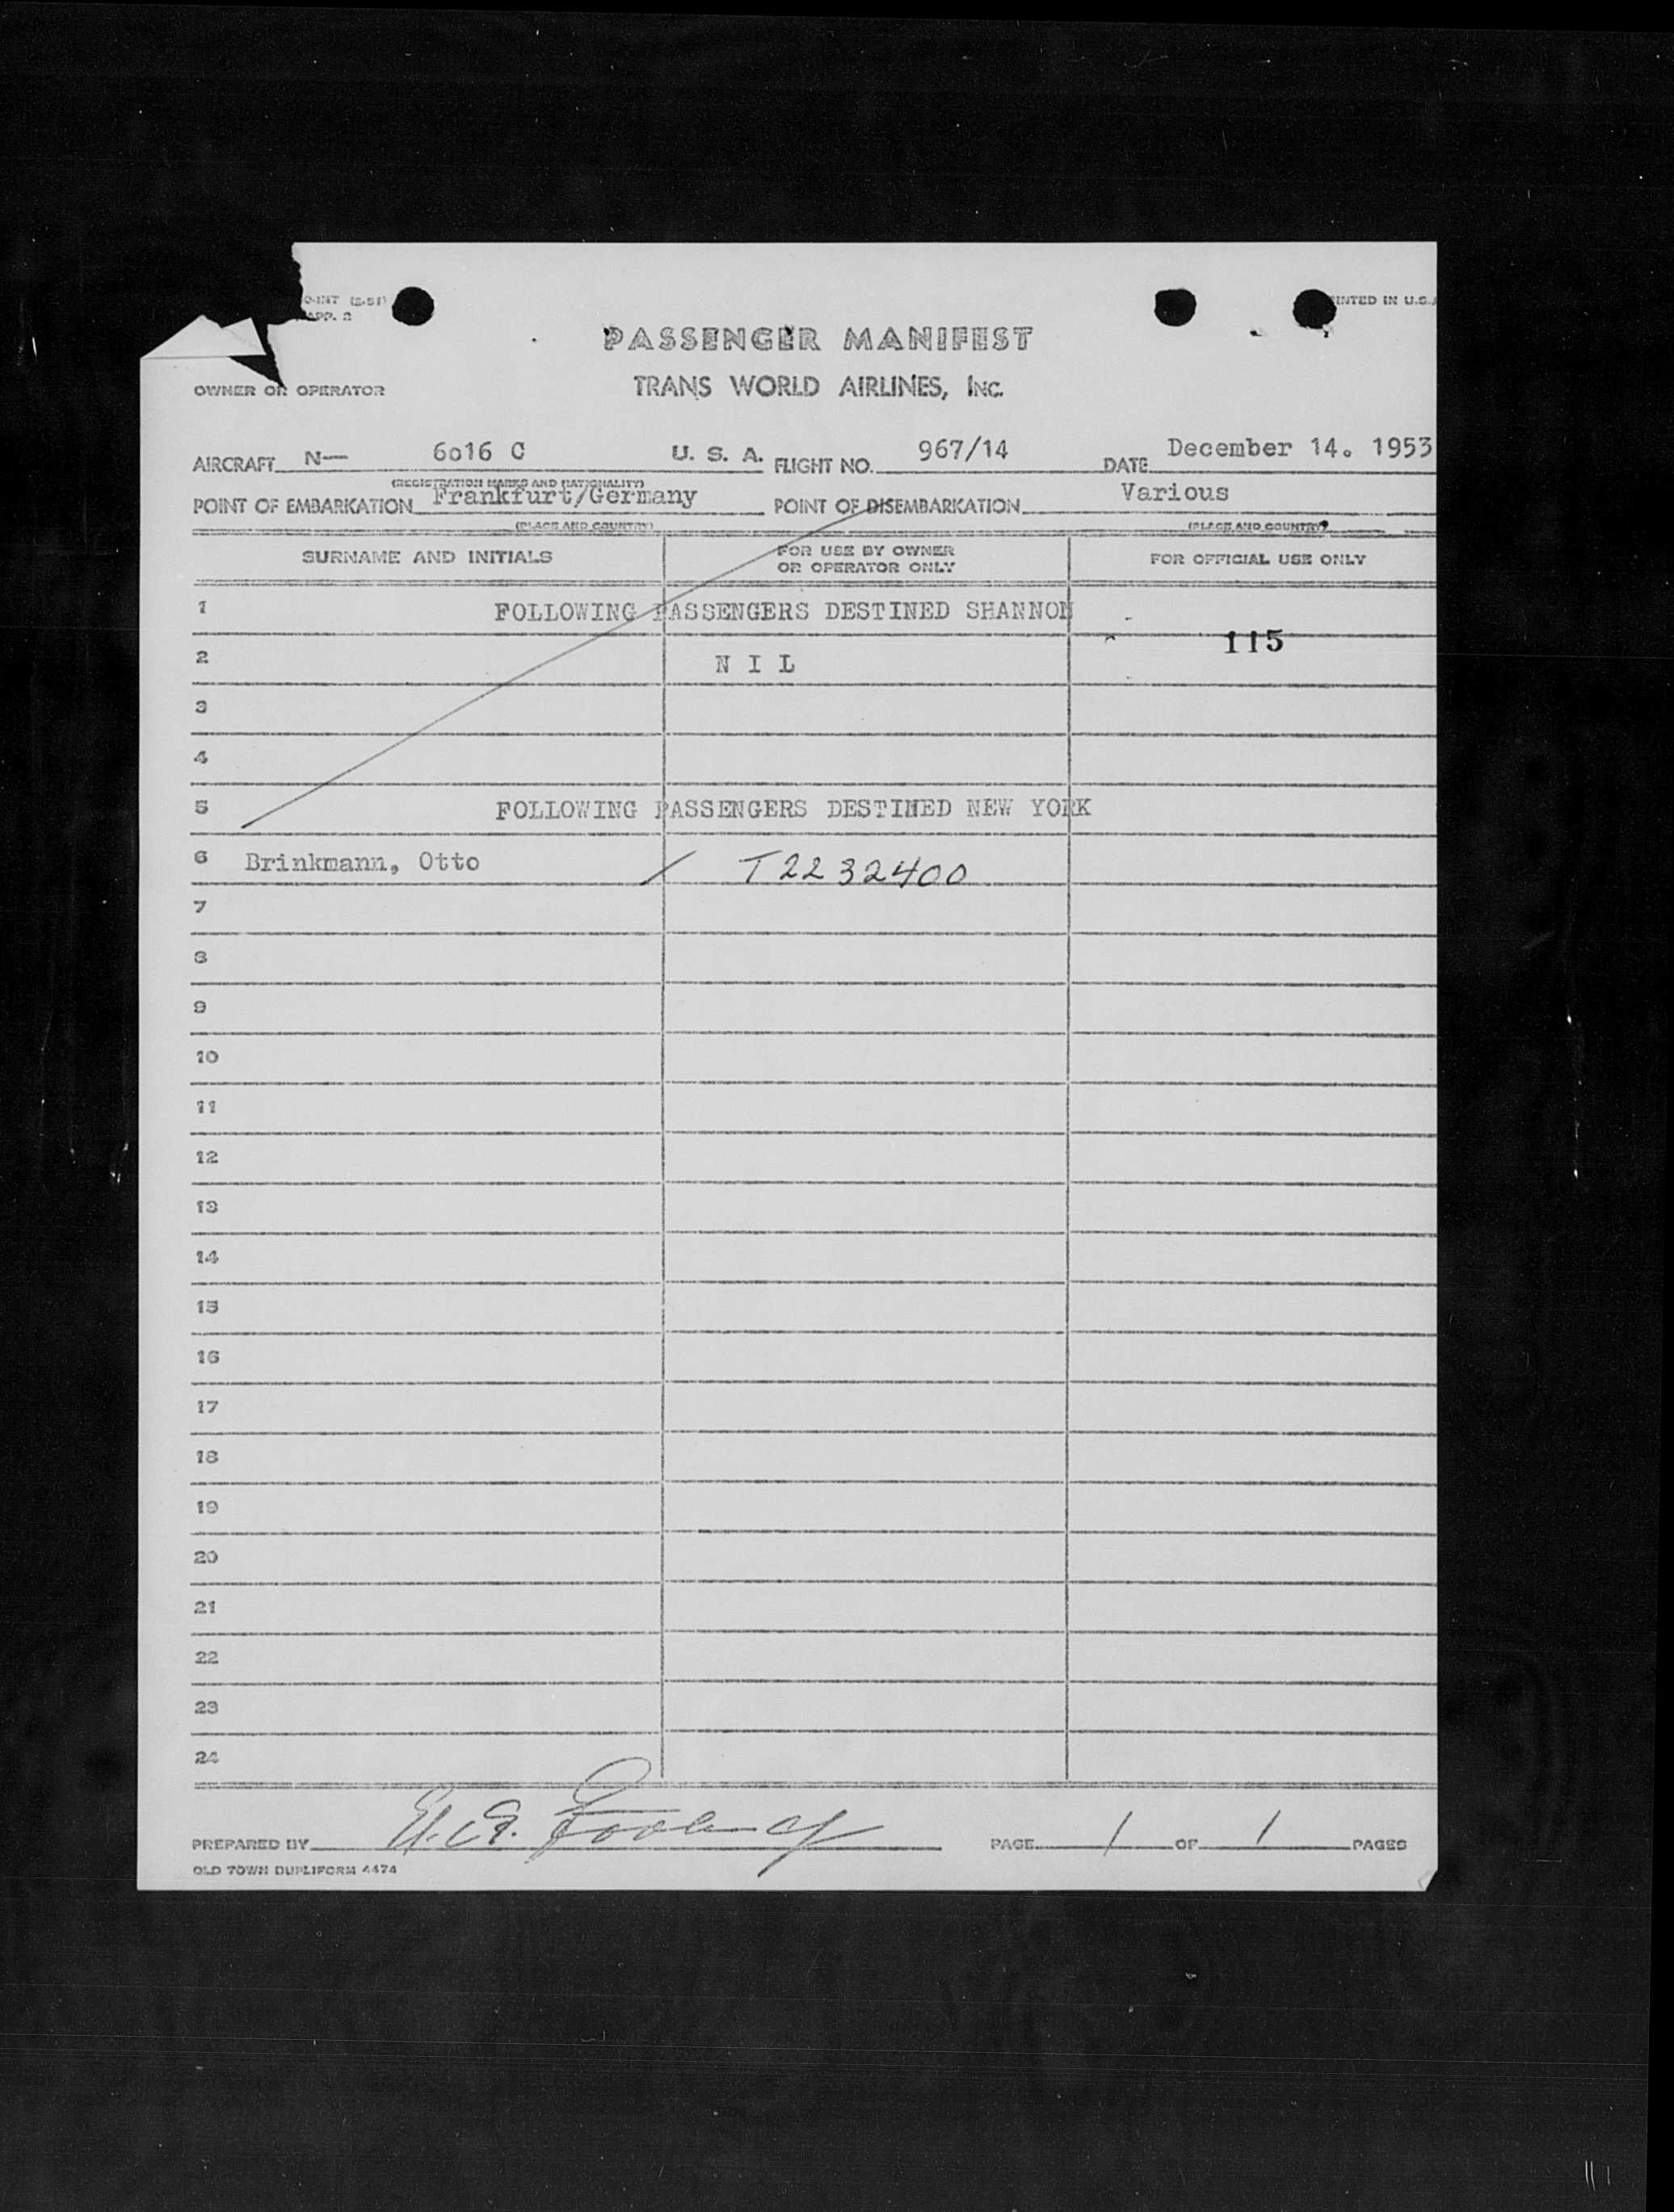 O-INT (2-51)
APP. 2
PRINTED IN U.S.A
PASSENGER MANIFEST
OWNER OR OPERATOR TRANS WORLD AIRLINES, INC.
AIRCRAFT N— 6o16 C U. S. A. FLIGHT NO. 967/14 DATE December 14. 1953
(REGISTRATION MARKS AND NATIONALITY)
POINT OF EMBARKATION Frankfurt/Germany POINT OF DISEMBARKATION Various
(PLACE AND COUNTRY) (PLACE AND COUNTRY)
SURNAME AND INITIALS FOR USE BY OWNER OR OPERATOR ONLY FOR OFFICIAL USE ONLY
1 FOLLOWING PASSENGERS DESTINED SHANNON
115
2 N I L
3
4
5 FOLLOWING PASSENGERS DESTINED NEW YORK
6 Brinkmann, Otto / T2232400
7
8
9
10
11
12
13
14
15
16
17
18
19
20
21
22
23
24
PREPARED BY PAGE 1 OF 1 PAGES
OLD TOWN DUPLIFORM 4474